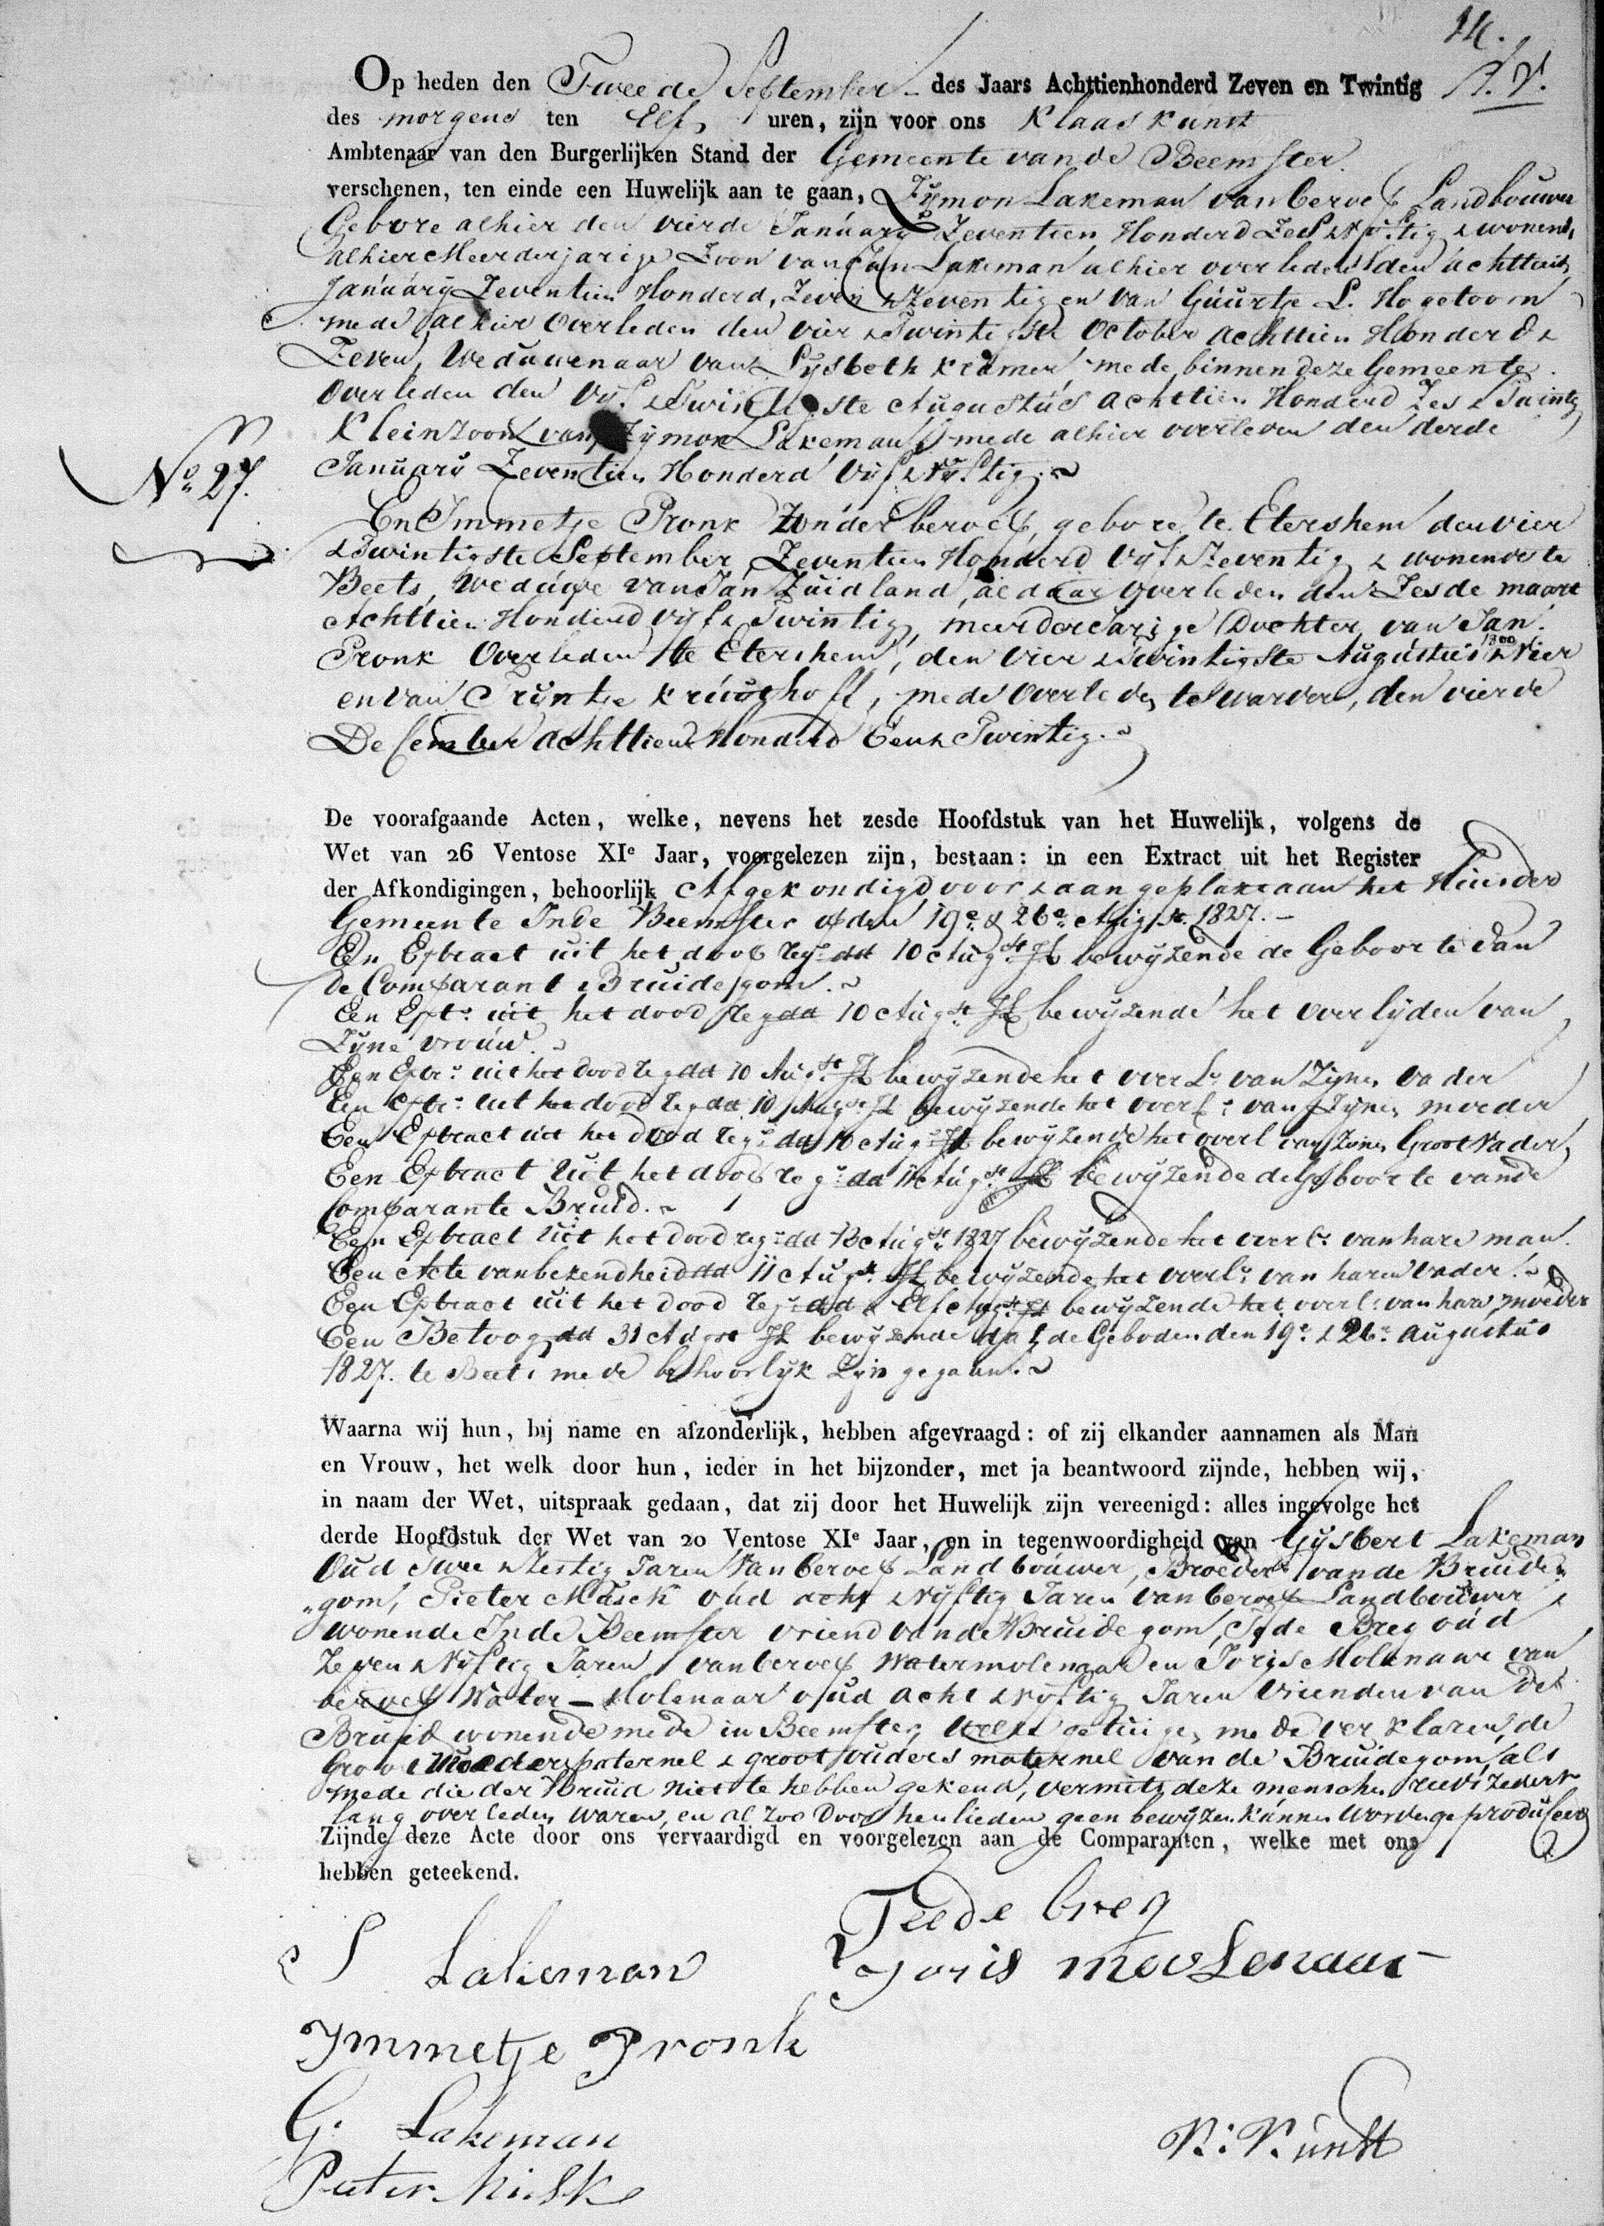 14.
Op heden den Tweede September des Jaars Achttienhonderd Zeven en Twintig
des morgens ten Elf uren, zijn voor ons Klaas Kunst
Ambtenaar van den Burgerlijken Stand der Gemeente van de Beemster
verschenen, ten einde een Huwelijk aan te gaan, Zymon Lakeman van beroep Landbouwer
Gebore alhier den vierde January Zeventien Honderd Zes & Vyftig & wonend,
alhier Meerderjarige Zoon van Jan Lakeman alhier overleden den achttien
January Zeventien Honderd, Zeven & Zeventig en van Guurtje L. Hogetoorn
mede alhier Overleden den vier & Twintigste October Achttien Honderd &
Zeven, Weduwenaar van Lysbeth Kramer, mede binnen deze Gemeente
overleden den Vyf & Twintigste Augustus achttien Honderd Zes & Twintig
Kleinzoon van Zymon Lakeman mede alhier overleden den derde
January Zeventien Honderd Vyf & Vyftig.
No 27.
En Immetje Pronk Zonder beroep, gebore te Etershem den vier
& Twintigste September Zeventien Honderd Vyf & Zeventig & wonende te
Beets, Weduwe van Jan Zuidland, aldaar overleden den Zesde maart
Achttien Honderd Vyf & Twintig, meerderjarige Dochter van Jan
Pronk Overleden te Etershem, den vier & Twintigste Augustus 1800 & Vier
en van Tryntje Kruythoff, mede Overleden te Warder, den vierde
Desember Achttien Honderd Een & Twintig.
De voorafgaande Acten, welke, nevens het zesde Hoofdstuk van het Huwelijk, volgens de
Wet van 26 Ventose XIe Jaar, voorgelezen zijn, bestaan: in een Extract uit het Register
der Afkondigingen, behoorlijk Afgekondigd voor & aangeplakt aan het Huis der
Gemeente In de Beemster op den 19e & 26e Augst. 1827.
Een Extract uit het doop regr dd 10 Augst Jl bewyzende de Geboorte van
de Comparant Bruidegom.
Een Extr. uit het dood Reg dd 10 Augst. Jl bewyzende het overlyden van
Zyne vrouw.
Een Extr. uit het dood Reg dd 10 Augst Jl bewyzende het overl. van Zynen Vader
Een Extr. uit het dood Reg dd 10 Augst Jl bewyzende het overl. van Zynen moeder
Een Extract uit het dood Regr dd 10 Augst Jl bewyzende het overl van Zynen Groot Vader
Een Extract Uit het doop Regr dd 11 Augst Jl bewyzende de Geboorte van de
Comparante Bruid.
Een Extract Uit het dood regr dd 13 Augst 1827 bewyzende het overl. van hare man.
Een Acte van bekendheid dd 11 Augst Jl bewyzende het overl. van haren vader.
Een Extract uit het dood Regr dd Elf Augst Jl bewyzende het overl. van hare moeder
Een Betoog dd 31 Augst Jl bewyzende dat de Geboden den 19e & 26e Augustus
1827. te Beets mede behoorlyk Zyn gegaan.
Waarna wij hun, bij name en afzonderlijk, hebben afgevraagd: of zij elkander aannamen als Man
en Vrouw, het welk door hun, ieder in het bijzonder, met ja beantwoord zijnde, hebben wij,
in naam der Wet, uitspraak gedaan, dat zij door het Huwelijk zijn vereenigd: alles ingevolge het
derde Hoofdstuk der Wet van 20 Ventose XIe Jaar, en in tegenwoordigheid van Gysbert Lakeman
Oud Twee & Zestig Jaren Van beroep Landbouwer, Broeder van de Bruide
gom, Pieter Musck oud acht & Vyftig Jaren van beroep Landbouwer &
wonende In de Beemster vriend van de Bruidegom, Tyde Breg oud
Zeven & Vyftig Jaren van beroep Watermolenaar en Joris Molenaar van
beroep Water-Molenaar oud acht & Vyftig Jaren Vrienden van de
Bruid wonende mede in Beemster, Welke getuigen mede verklaren, de
Groot Moeder paternel & groot ouders maternel van de Bruidegom, als
mede die der Bruid niet te hebben gekend, vermits deze menschen reets zedert
lang overleden waren, en al zoo Door hen lieden geen bewyzen kunnen worden geproduseerd
Zijnde deze Acte door ons vervaardigd en voorgelezen aan de Comparanten, welke met ons
hebben geteekend.
S Lakeman
Teede breg
Joris moolenaar
Immetje Pronk
G. Lakeman
K: Kunst